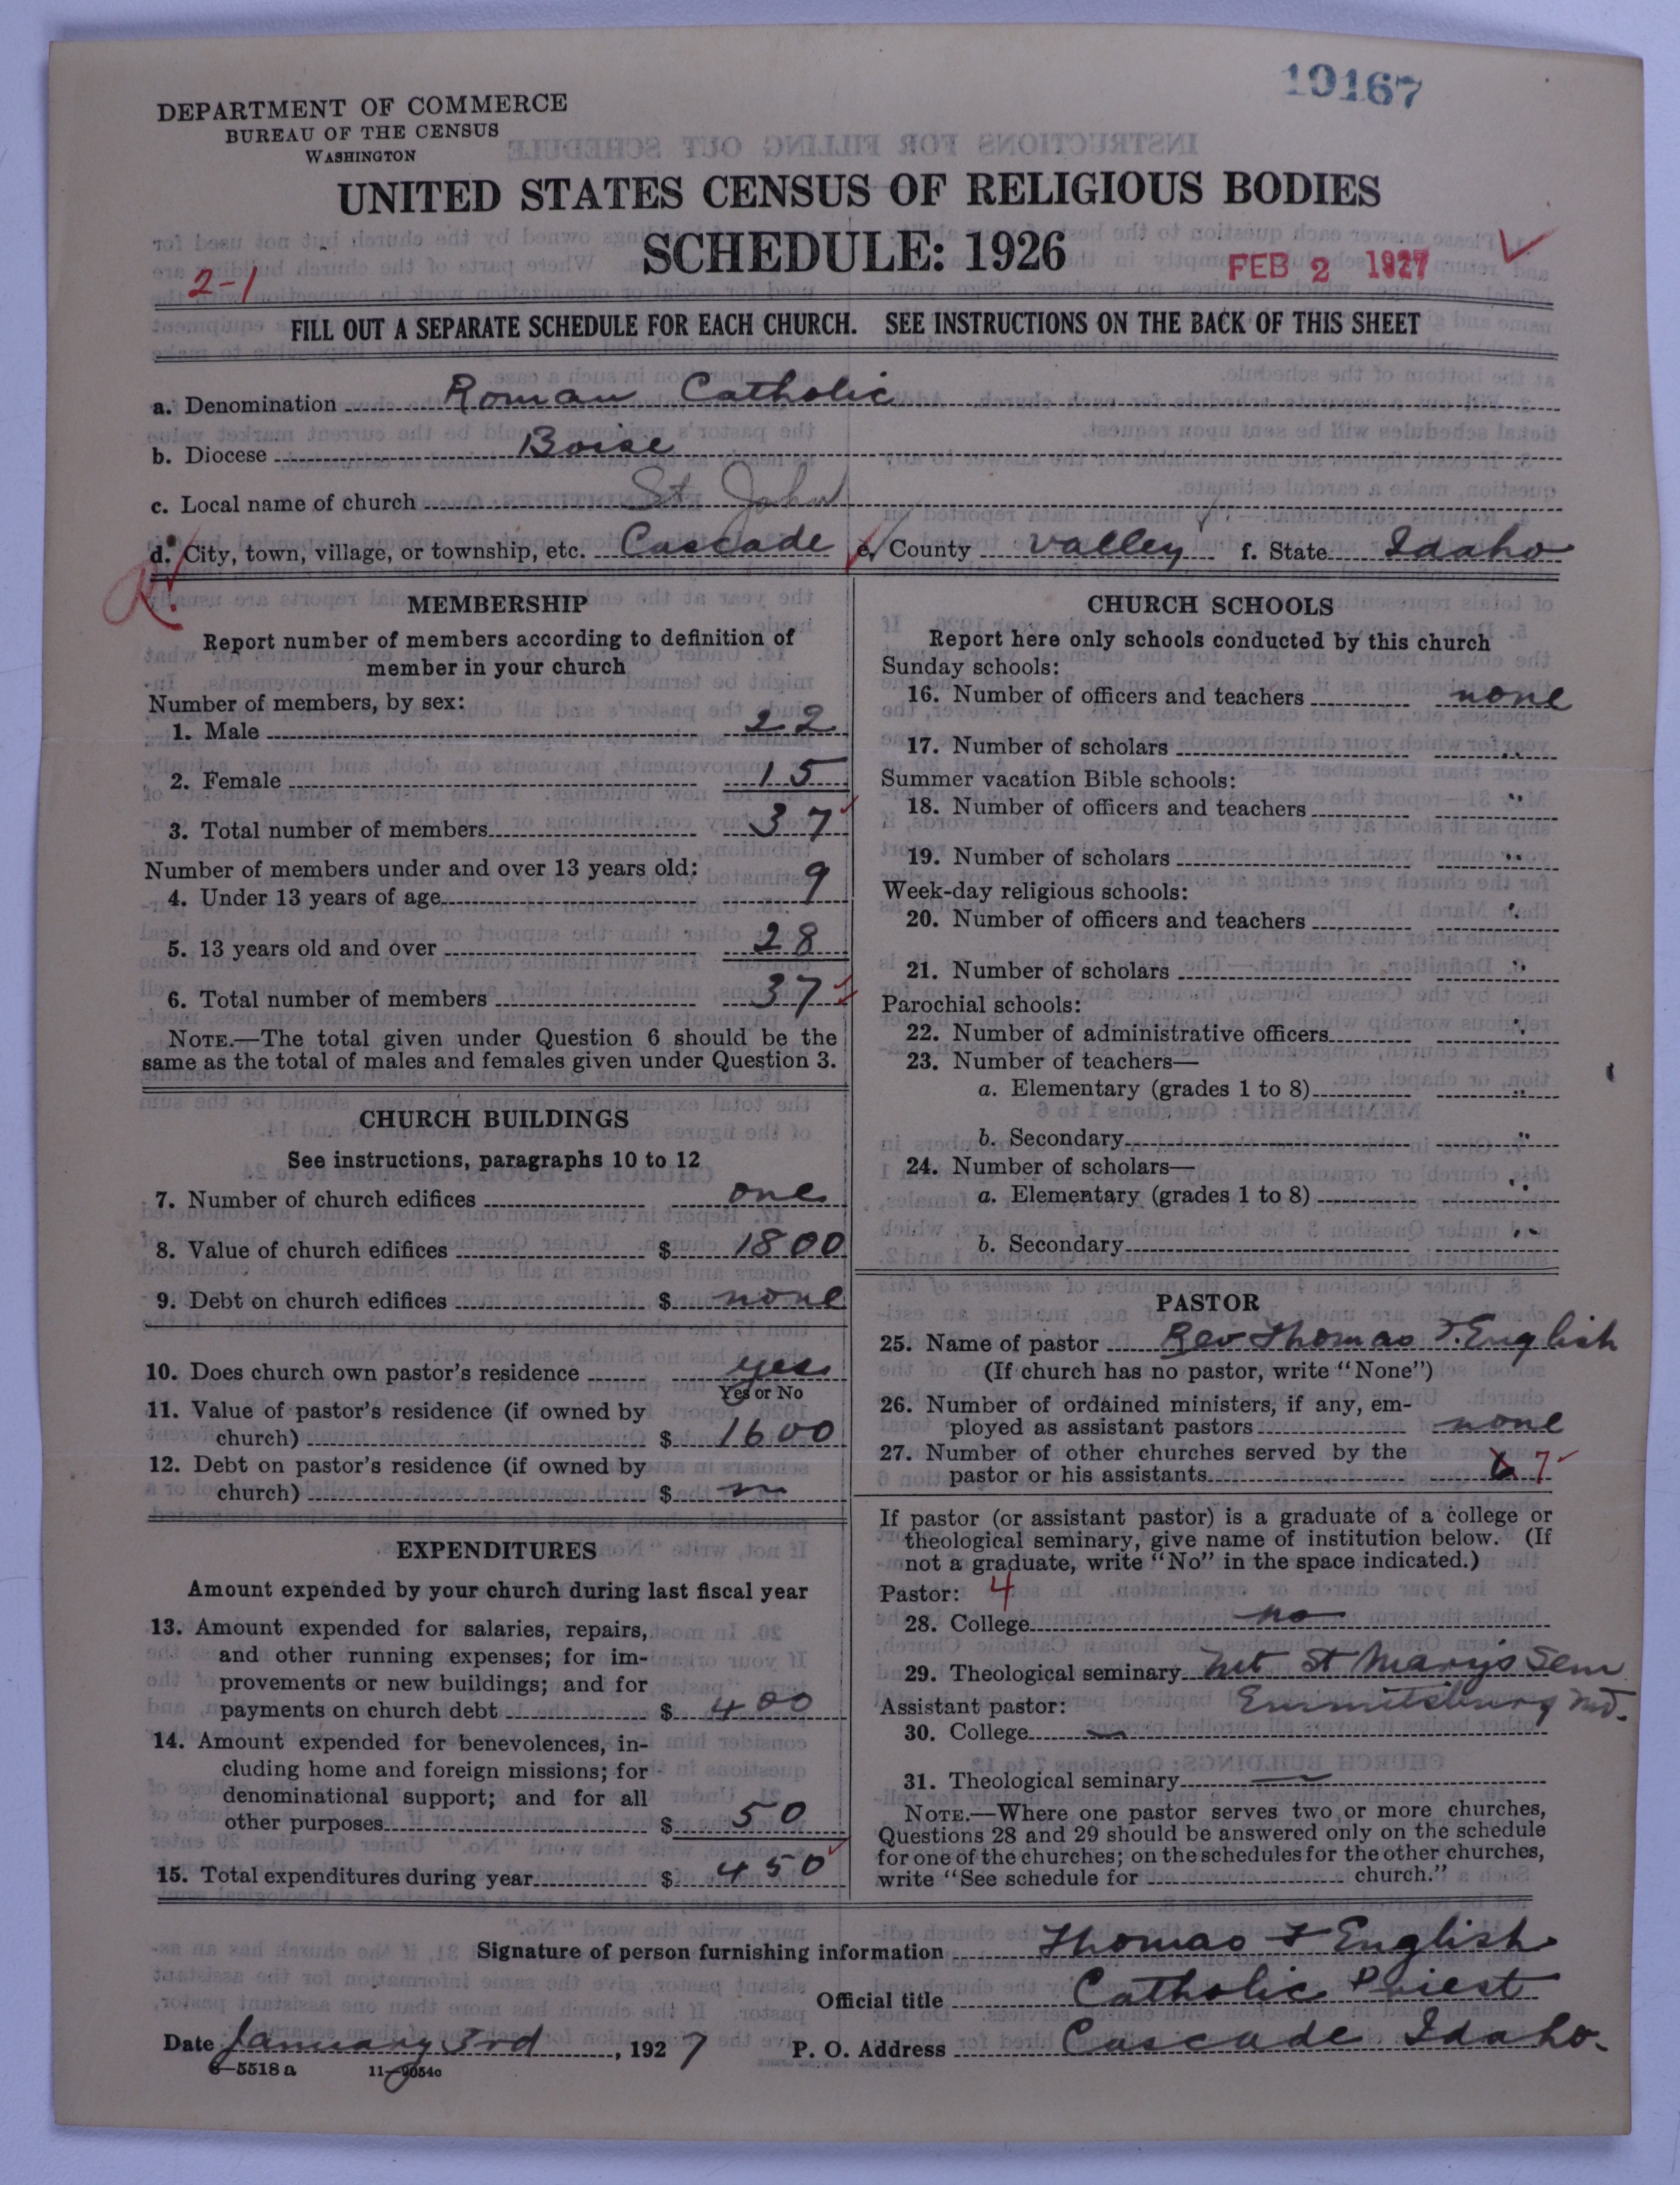 19167
DEPARTMENT OF COMMERCE
BUREAU OF THE CENSUS
WASHINGTON
UNITED STATES CENSUS OF RELIGIOUS BODIES
SCHEDULE: 1926
FEB 2 1927
2-1
FILL OUT A SEPARATE SCHEDULE FOR EACH CHURCH. SEE INSTRUCTIONS ON THE BACK OF THIS SHEET
a. Denomination Roman Catholic
b. Diocese Boise
c. Local name of church St John
d. City, town, village, or township, etc. Cascade e. County Valley f. State Idaho
MEMBERSHIP
Report number of members according to definition of
member in your church
Number of members, by sex:
1. Male 22
2. Female 15
3. Total number of members 37
Number of members under and over 13 years old:
4. Under 13 years of age 9
5. 13 years old and over 28
6. Total number of members 37
NOTE.—The total given under Question 6 should be the
same as the total of males and females given under Question 3.
CHURCH BUILDINGS
See instructions, paragraphs 10 to 12
7. Number of church edifices one
8. Value of church edifices $ 1800
9. Debt on church edifices $ none
10. Does church own pastor's residence yes
Yes or No
11. Value of pastor's residence (if owned by
church) $ 1600
12. Debt on pastor's residence (if owned by
church) $
EXPENDITURES
Amount expended by your church during last fiscal year
13. Amount expended for salaries, repairs,
and other running expenses; for im-
provements or new buildings; and for
payments on church debt $ 400
14. Amount expended for benevolences, in-
cluding home and foreign missions; for
denominational support; and for all
other purposes $ 50
15. Total expenditures during year $ 450
CHURCH SCHOOLS
Report here only schools conducted by this church
Sunday schools:
16. Number of officers and teachers none
17. Number of scholars "
Summer vacation Bible schools:
18. Number of officers and teachers "
19. Number of scholars "
Week-day religious schools:
20. Number of officers and teachers "
21. Number of scholars "
Parochial schools:
22. Number of administrative officers "
23. Number of teachers—
a. Elementary (grades 1 to 8) "
b. Secondary "
24. Number of scholars—
a. Elementary (grades 1 to 8) "
b. Secondary "
PASTOR
25. Name of pastor Rev Thomas F. English
(If church has no pastor, write "None")
26. Number of ordained ministers, if any, em-
ployed as assistant pastors none
27. Number of other churches served by the
pastor or his assistants 6 7
If pastor (or assistant pastor) is a graduate of a college or
theological seminary, give name of institution below. (If
not a graduate, write "No" in the space indicated.)
Pastor: 4
28. College no
29. Theological seminary Mt St Mary's Sem
Emmitsburg Md.
Assistant pastor:
30. College —
31. Theological seminary —
NOTE.—Where one pastor serves two or more churches,
Questions 28 and 29 should be answered only on the schedule
for one of the churches; on the schedules for the other churches,
write "See schedule for church."
Signature of person furnishing information Thomas F English
Official title Catholic Priest
Date January 3rd, 1927 P. O. Address Cascade Idaho.
8—5518a 11—9054c